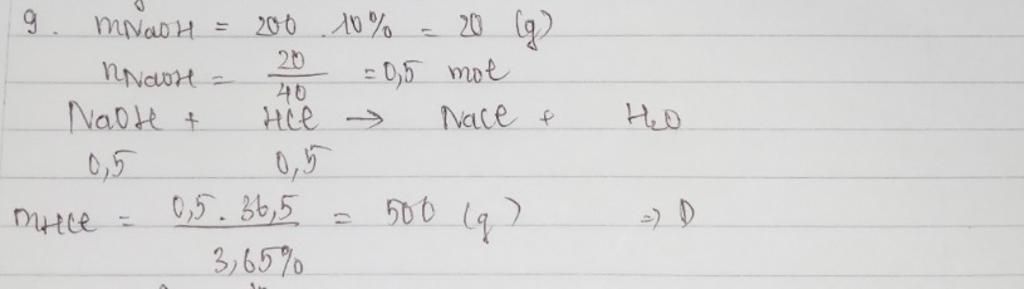 9. mNaOH = 200 . 10% = 20 (g)
nNaOH = 20/40 = 0,5 mol
NaOH + HCl → NaCl + H₂O
0,5 0,5
mHCl = 0,5 . 36,5 / 3,65% = 500 (g) => D